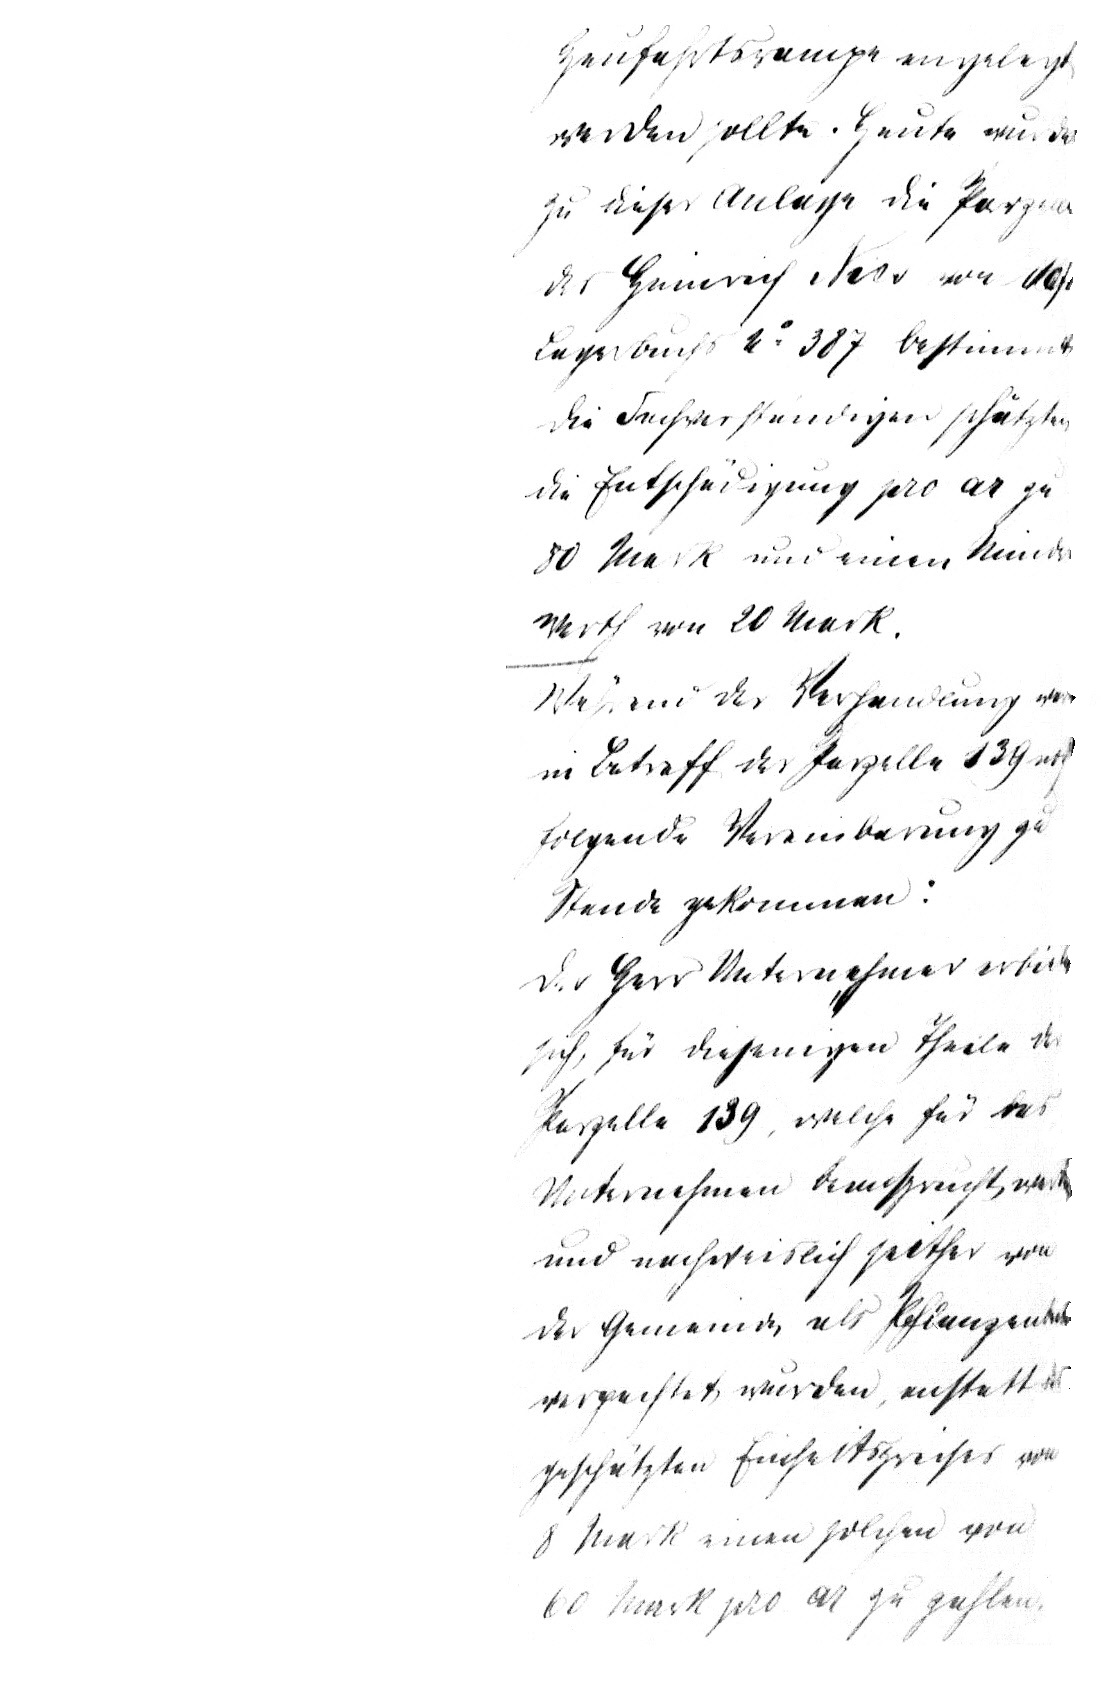 angelegt
werden sollte. Heute wurde
zu dieser Anlage die
des Heinrich von
Lagerbuchs No 387 bestimmt
die Sachverständigen schätzten
die Entschädigung pro ar zu
80 Mark und einen Minder
werth von 20 Mark.
Während der Verhandlung war
in Betreff der Parzelle 139
folgende Vereinbarung zu
Stande gekommen:
Der Herr Unternehmer erbietet
sich, für diejenigen Theile der
Parzelle 139, welche für das
Unternehmen beansprucht werden
und nachweislich seither von
der Gemeinde als
verpachtet wurden, anstatt des
geschätzten Einheitspreises von
8 Mark einen solchen von
60 Mark pro ar zu zahlen.